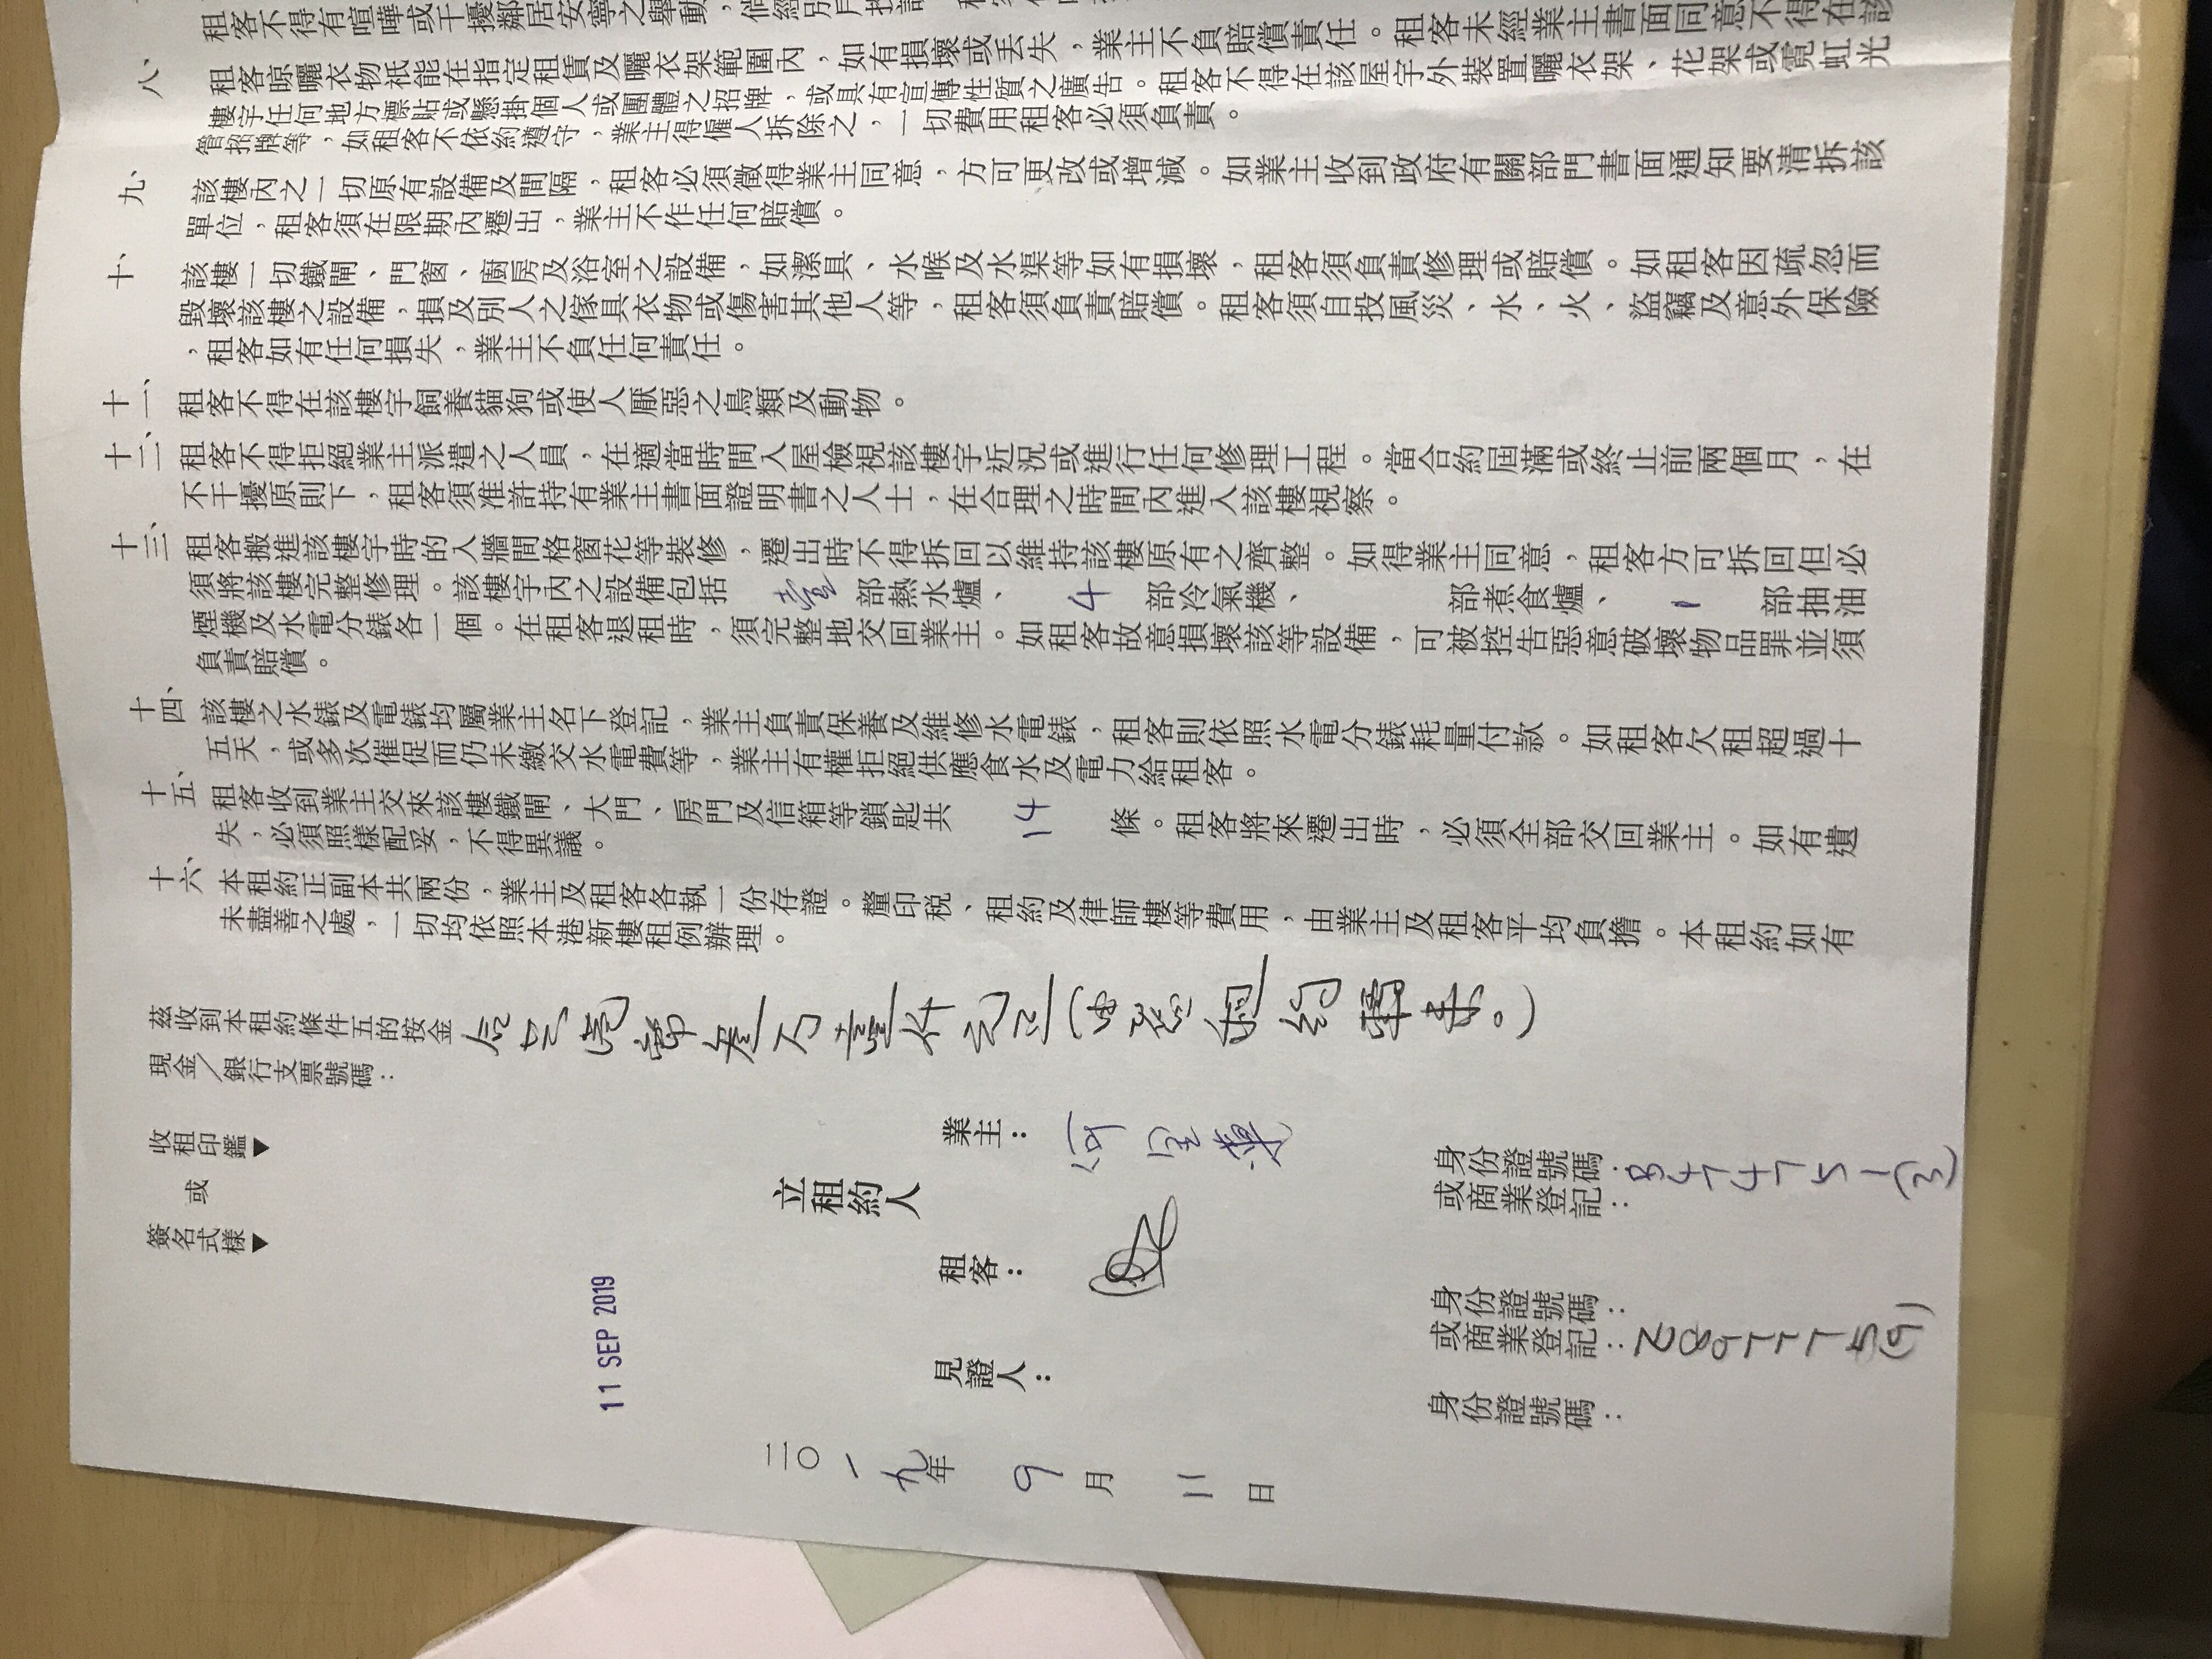 租客不得有喧嘩或干擾鄰居安寧之舉動，
八、租客晾曬衣物祇能在指定租賃及曬衣架範圍內，如有損壞或丟失，業主不負賠償責任。租客未經業主書面同意不得在該
樓宇任何地方標貼或懸掛個人或團體之招牌，或具有宣傳性質之廣告。租客不得在該屋宇外裝置曬衣架、花架或霓虹光
管招牌等，如租客不依約遵守，業主得僱人拆除之，一切費用租客必須負責。
九、該樓內之一切原有設備及間隔，租客必須徵得業主同意，方可更改或增減。如業主收到政府有關部門書面通知要清拆該
單位，租客須在限期內遷出，業主不作任何賠償。
十、該樓一切鐵閘、門窗、廚房及浴室之設備，如潔具、水喉及水渠等如有損壞，租客須負責修理或賠償。如租客因疏忽而
毀壞該樓之設備，損及別人之傢具衣物或傷害其他人等，租客須負責賠償。租客須自投風災、水、火、盜竊及意外保險
，租客如有任何損失，業主不負任何責任。
十一、租客不得在該樓宇飼養貓狗或使人厭惡之鳥類及動物。
十二、租客不得拒絕業主派遣之人員，在適當時間入屋檢視該樓宇近況或進行任何修理工程。當合約屆滿或終止前兩個月，在
不干擾原則下，租客須准許持有業主書面證明書之人士，在合理之時間內進入該樓視察。
十三、租客搬進該樓宇時的入牆間格窗花等裝修，遷出時不得拆回以維持該樓原有之齊整。如得業主同意，租客方可拆回但必
須將該樓完整修理。該樓宇內之設備包括 壹 部熱水爐、 4 部冷氣機、 部煮食爐、 1 部抽油
煙機及水電分錶各一個。在租客退租時，須完整地交回業主。如租客故意損壞該等設備，可被控告惡意破壞物品罪並須
負責賠償。
十四、該樓之水錶及電錶均屬業主名下登記，業主負責保養及維修水電錶，租客則依照水電分錶耗量付款。如租客欠租超過十
五天，或多次催促而仍未繳交水電費等，業主有權拒絕供應食水及電力給租客。
十五、租客收到業主交來該樓鐵閘、大門、房門及信箱等鎖匙共 14 條。租客將來遷出時，必須全部交回業主。如有遺
失，必須照樣配妥，不得異議。
十六、本租約正副本共兩份，業主及租客各執一份存證。釐印税、租約及律師樓等費用，由業主及租客平均負擔。本租約如有
未盡善之處，一切均依照本港新樓租例辦理。
茲收到本租約條件五的按金 合共港幣叁万壹仟元正(由舊租約轉来。)
現金／銀行支票號碼：
收租印鑑▼ 或 簽名式樣▼
11 SEP 2019
立租約人
業主：何
身份證號碼
或商業登記：B474751(3)
租客：
身份證號碼：
或商業登記：Z897775(9)
見證人：
身份證號碼：
二〇一九年 9 月 11 日